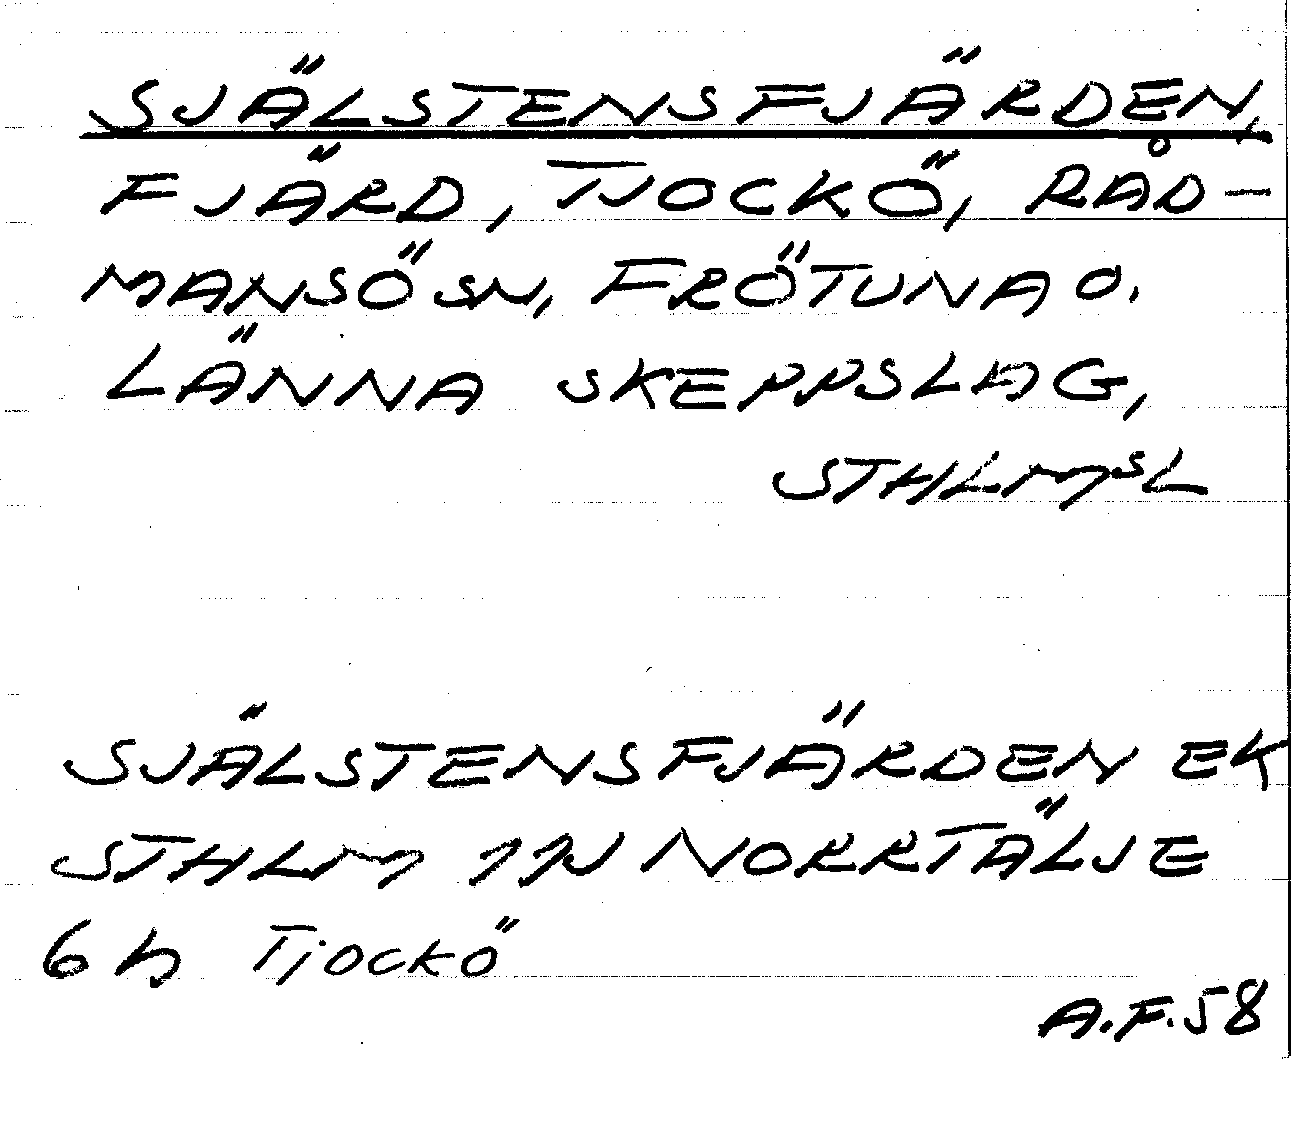 SJÄLSTENSFJÄRDEN,
FJÄRD, TJOCKÖ, RÅD-
MANSÖ SN, FRÖTUNA O.
LÄNNA SKEPPSLAG,
STHLMSL
SJÄLSTENSFJÄRDEN EK
STHLM 11J NORRTÄLJE
6h TjOCKÖ
A.F.58